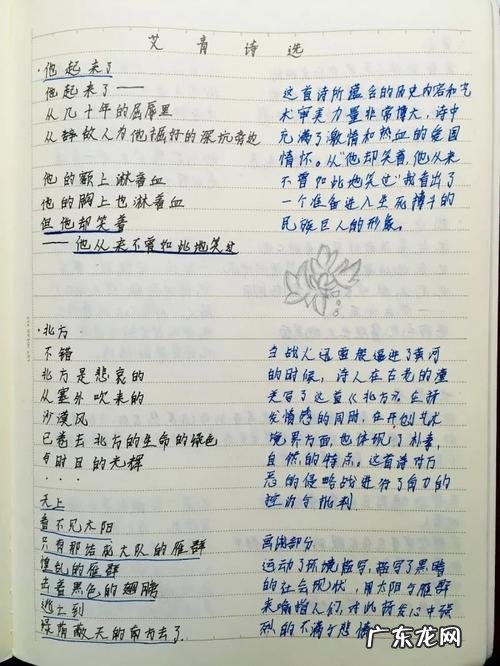 艾青诗选
·他起来了
他起来了——
从几十年的屈辱里
从敌人为他掘好的深坑旁边
他的额上淋着血
他的胸上也淋着血
但他却笑着
——他从来不曾如此地笑过
这首诗所蕴含的历史内容和艺
术审美力量非常博大，诗中
充满了激情和热血的爱国
情怀。从“他却笑着，他从来
不曾如此地笑过”我看出了
一个准备进入生死搏斗的
民族巨人的形象。
·北方
不错
北方是悲哀的
从塞外吹来的
沙漠风
已卷去北方的生命的绿色
与时日的光辉
...
天上
看不见太阳
只有那结成大队的雁群
惶乱的雁群
击着黑色的翅膀
逃亡到
绿荫蔽天的南方去了
当战火
逼进了黄河
的时候，诗人在古老的潼
关写了这首《北方》，在抒
发情感的同时，在开创艺术
境界方面，也体现了朴素，
自然的特点。这首诗对万
恶的侵略战进行了有力的
控诉与批判
画线部分
运动了环境描写，描写了黑暗
的社会现状，用太阳与雁群
来喻指人们，
心中强
烈的不满与悲情
广东龙网